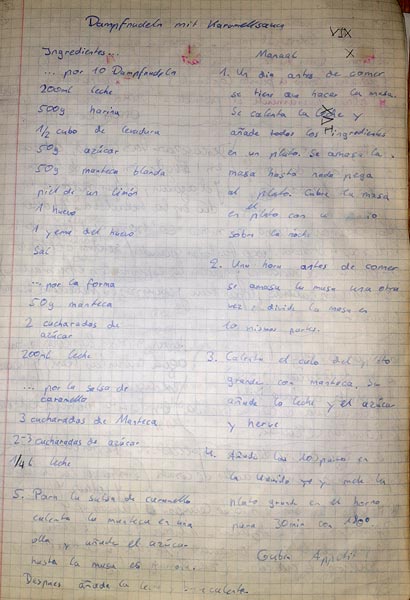 Dampfnudeln mit Karamellsauce
Ingredientes...
... por 10 Dampfnudeln
200ml leche
500g harina
1/2 cubo de levadura
50g azúcar
50g manteca blanda
piel de un limón
1 huevo
1 yema del huevo
Sal
... por la forma
50g manteca
2 cucharadas de
azúcar
200ml leche
... por la salsa de
caramella
3 cucharadas de Manteca
2-3 cucharadas de azúcar
1/4l leche
Manual
1. Un día antes de comer
se tiene que hacer la masa.
Se calienta la leche y
añade todos los ingredientes
en un plato. Se amasa la
masa hasta nada pega
al plato. Cubre la masa
en el plato con
sobre la noche
2. Una hora antes de comer
se amasa la masa una otra
vez y divide la masa en
10 mismos partes.
3. Calenta el culo del plato
grande con manteca, se
añade la leche y el azúcar
y herve
4. Añade los 10 partes en
la y mete la
plato grande en el horno
para 30min con 180°
5. Para la salsa de caramella
calenta la manteca en una
olla y añade el azúcar
hasta la masa es
Despues añada la leche calenta
Guten Appetit!